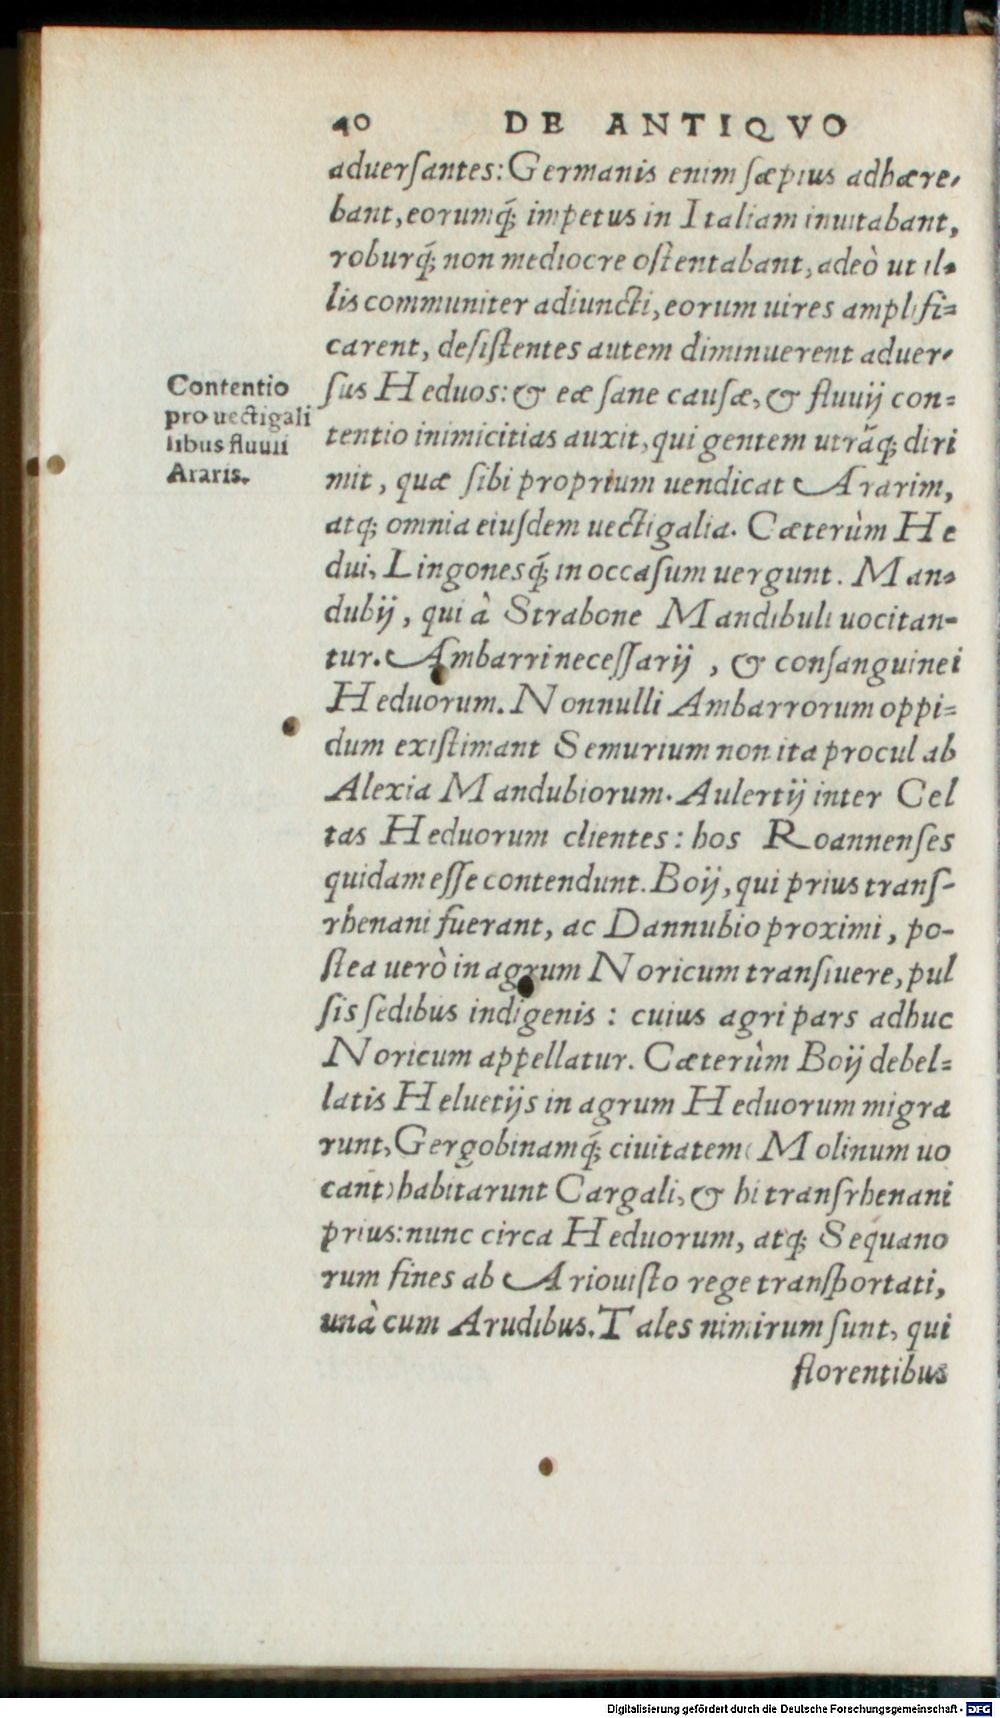 40 DE ANTIQVO
aduerſantes: Germanis enim ſæpius adhære-
bant, eorumq́; impetus in Italiam inuitabant,
roburq́; non mediocre oſtentabant, adeò ut il-
lis communiter adiuncti, eorum uires amplifi-
carent, deſiſtentes autem diminuerent aduer-
ſus Heduos: & eæ ſane cauſæ, & fluuij con-
tentio inimicitias auxit, qui gentem utrāq; diri
mit, quæ ſibi proprium uendicat Ararim,
atq; omnia eiuſdem uectigalia. Cæterùm He
dui, Lingonesq́; in occaſum uergunt. Man-
dubij, qui à Strabone Mandibuli uocitan-
tur. Ambarri neceſſarij, & conſanguinei
Heduorum. Nonnulli Ambarrorum oppi-
dum exiſtimant Semurium non ita procul ab
Alexia Mandubiorum. Aulertij inter Cel
tas Heduorum clientes: hos Roannenſes
quidam eſſe contendunt. Boij, qui prius tranſ-
rhenani fuerant, ac Dannubio proximi, po-
ſtea uerò in agrum Noricum tranſiuere, pul
ſis ſedibus indigenis: cuius agri pars adhuc
Noricum appellatur. Cæterùm Boij debel-
latis Heluetijs in agrum Heduorum migra
runt, Gergobinamq́; ciuitatem (Molinum uo
cant) habitarunt Cargali, & hi tranſrhenani
prius: nunc circa Heduorum, atq; Sequano
rum fines ab Ariouiſto rege tranſportati,
unà cum Arudibus. Tales nimirum ſunt, qui
florentibus
Contentio
pro uectigali
libus fluuii
Araris.
Digitalisierung gefördert durch die Deutsche Forschungsgemeinschaft - DFG